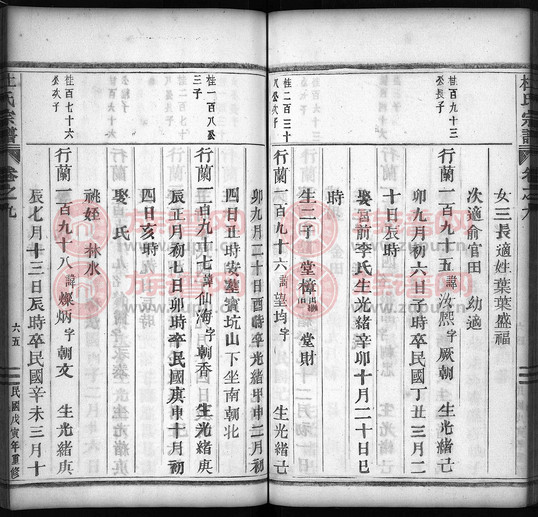 杜氏宗譜
卷之九
女三長適姓葉葉盛福
次適俞官田 幼適
桂百九十三
公長子
行蘭一百九十五諱汝熙字厥朝 生光緒己
卯九月初六日子時卒民國丁丑三月二
十日辰時
娶富前李氏生光緒辛卯十月二十日巳
時
生二子 堂樟 堂財
桂二百三十
八公次子
行蘭一百九十六諱望均字 生光緒己
卯九月二十日酉時卒光緒甲申二月初
四日丑時安塟寳坑山下坐南朝北
桂一百八公
三子
行蘭一百九十七諱仙海字朝香 生光緒庚
辰正月初七日卯時卒民國庚申十月初
四日亥時
娶 氏
祧姪 林水
桂百七十六
公次子
行蘭一百九十八諱燦炳字朝文 生光緒庚
辰七月十三日辰時卒民國辛未三月十
杜氏宗譜
卷之九
六五
民國戊寅年重修
族譜网
www.zupu.cn